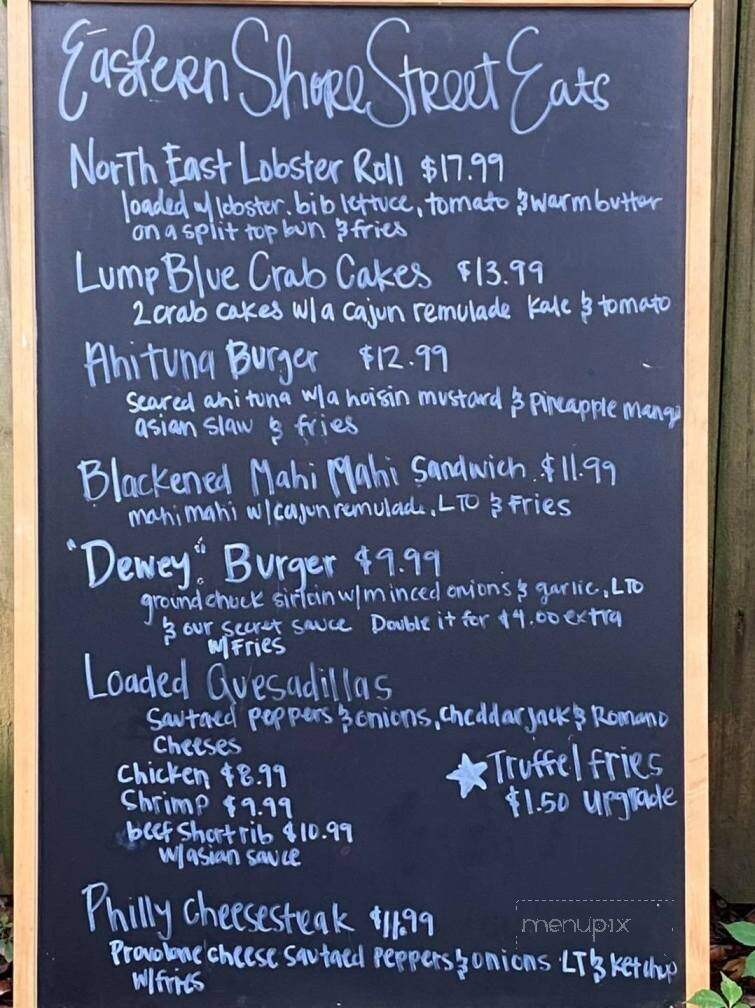 Eastern Shore Street Eats
North East Lobster Roll $17.99
loaded w/ lobster, bib lettuce, tomato & warm butter
on a split top bun & fries
Lump Blue Crab Cakes $13.99
2 crab cakes w/a cajun remulade kale & tomato
Ahi tuna Burger $12.99
Seared ahi tuna w/a hoisin mustard & Pineapple mango
asian slaw & fries
Blackened Mahi Mahi Sandwich $11.99
mahi mahi w/cajun remulade, LTO & Fries
"Dewey" Burger $9.99
ground chuck sirloin w/minced onions & garlic, LTO
& our secret sauce Double it for $4.00 extra
w/Fries
Loaded Quesadillas
Sautaed Peppers & onions, cheddar jack & Romano
Cheeses
Chicken $8.99
Shrimp $9.99
beef Short rib $10.99
w/asian sauce
Truffel fries
$1.50 upgrade
Philly cheesesteak $11.99
Provolone cheese Sautaed Peppers & onions LT & ketchup
w/fries
menupix